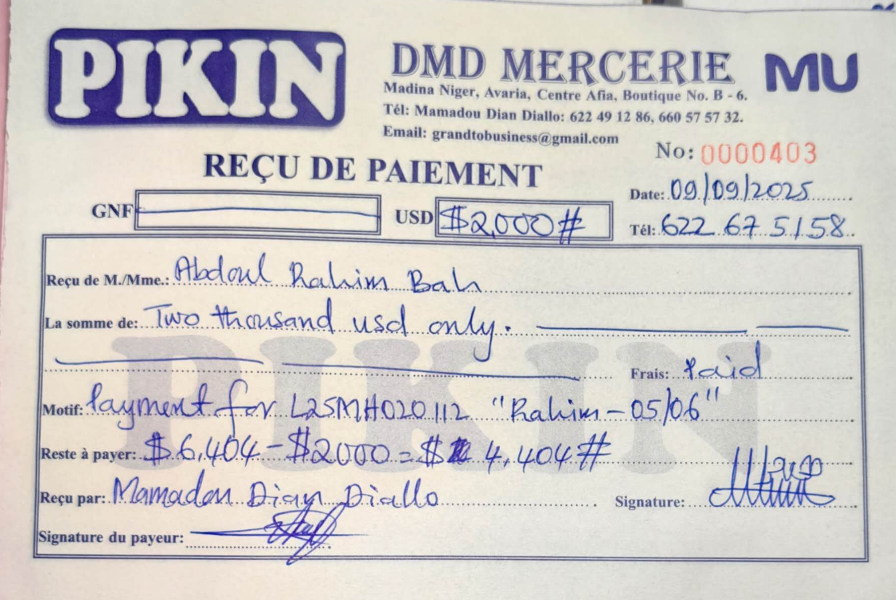 PIKIN
DMD MERCERIE
MU
Madina Niger, Avaria, Centre Afia, Boutique No. B - 6.
Tél: Mamadou Dian Diallo: 622 49 12 86, 660 57 57 32.
Email: grandtobusiness@gmail.com
No: 0000403
REÇU DE PAIEMENT
Date: 09/09/2025
GNF
USD $2,000#
Tél: 622 67 51 58
Reçu de M./Mme.: Abdoul Rahim Bah
La somme de: Two thousand usd only.
Frais: Paid
Motif: Payment for L25MH020112 "Rahim-05/06"
Reste à payer: $6,404-$2000=$ 4,404#
Reçu par: Mamadou Dian Diallo
Signature:
Signature du payeur:
PIKIN